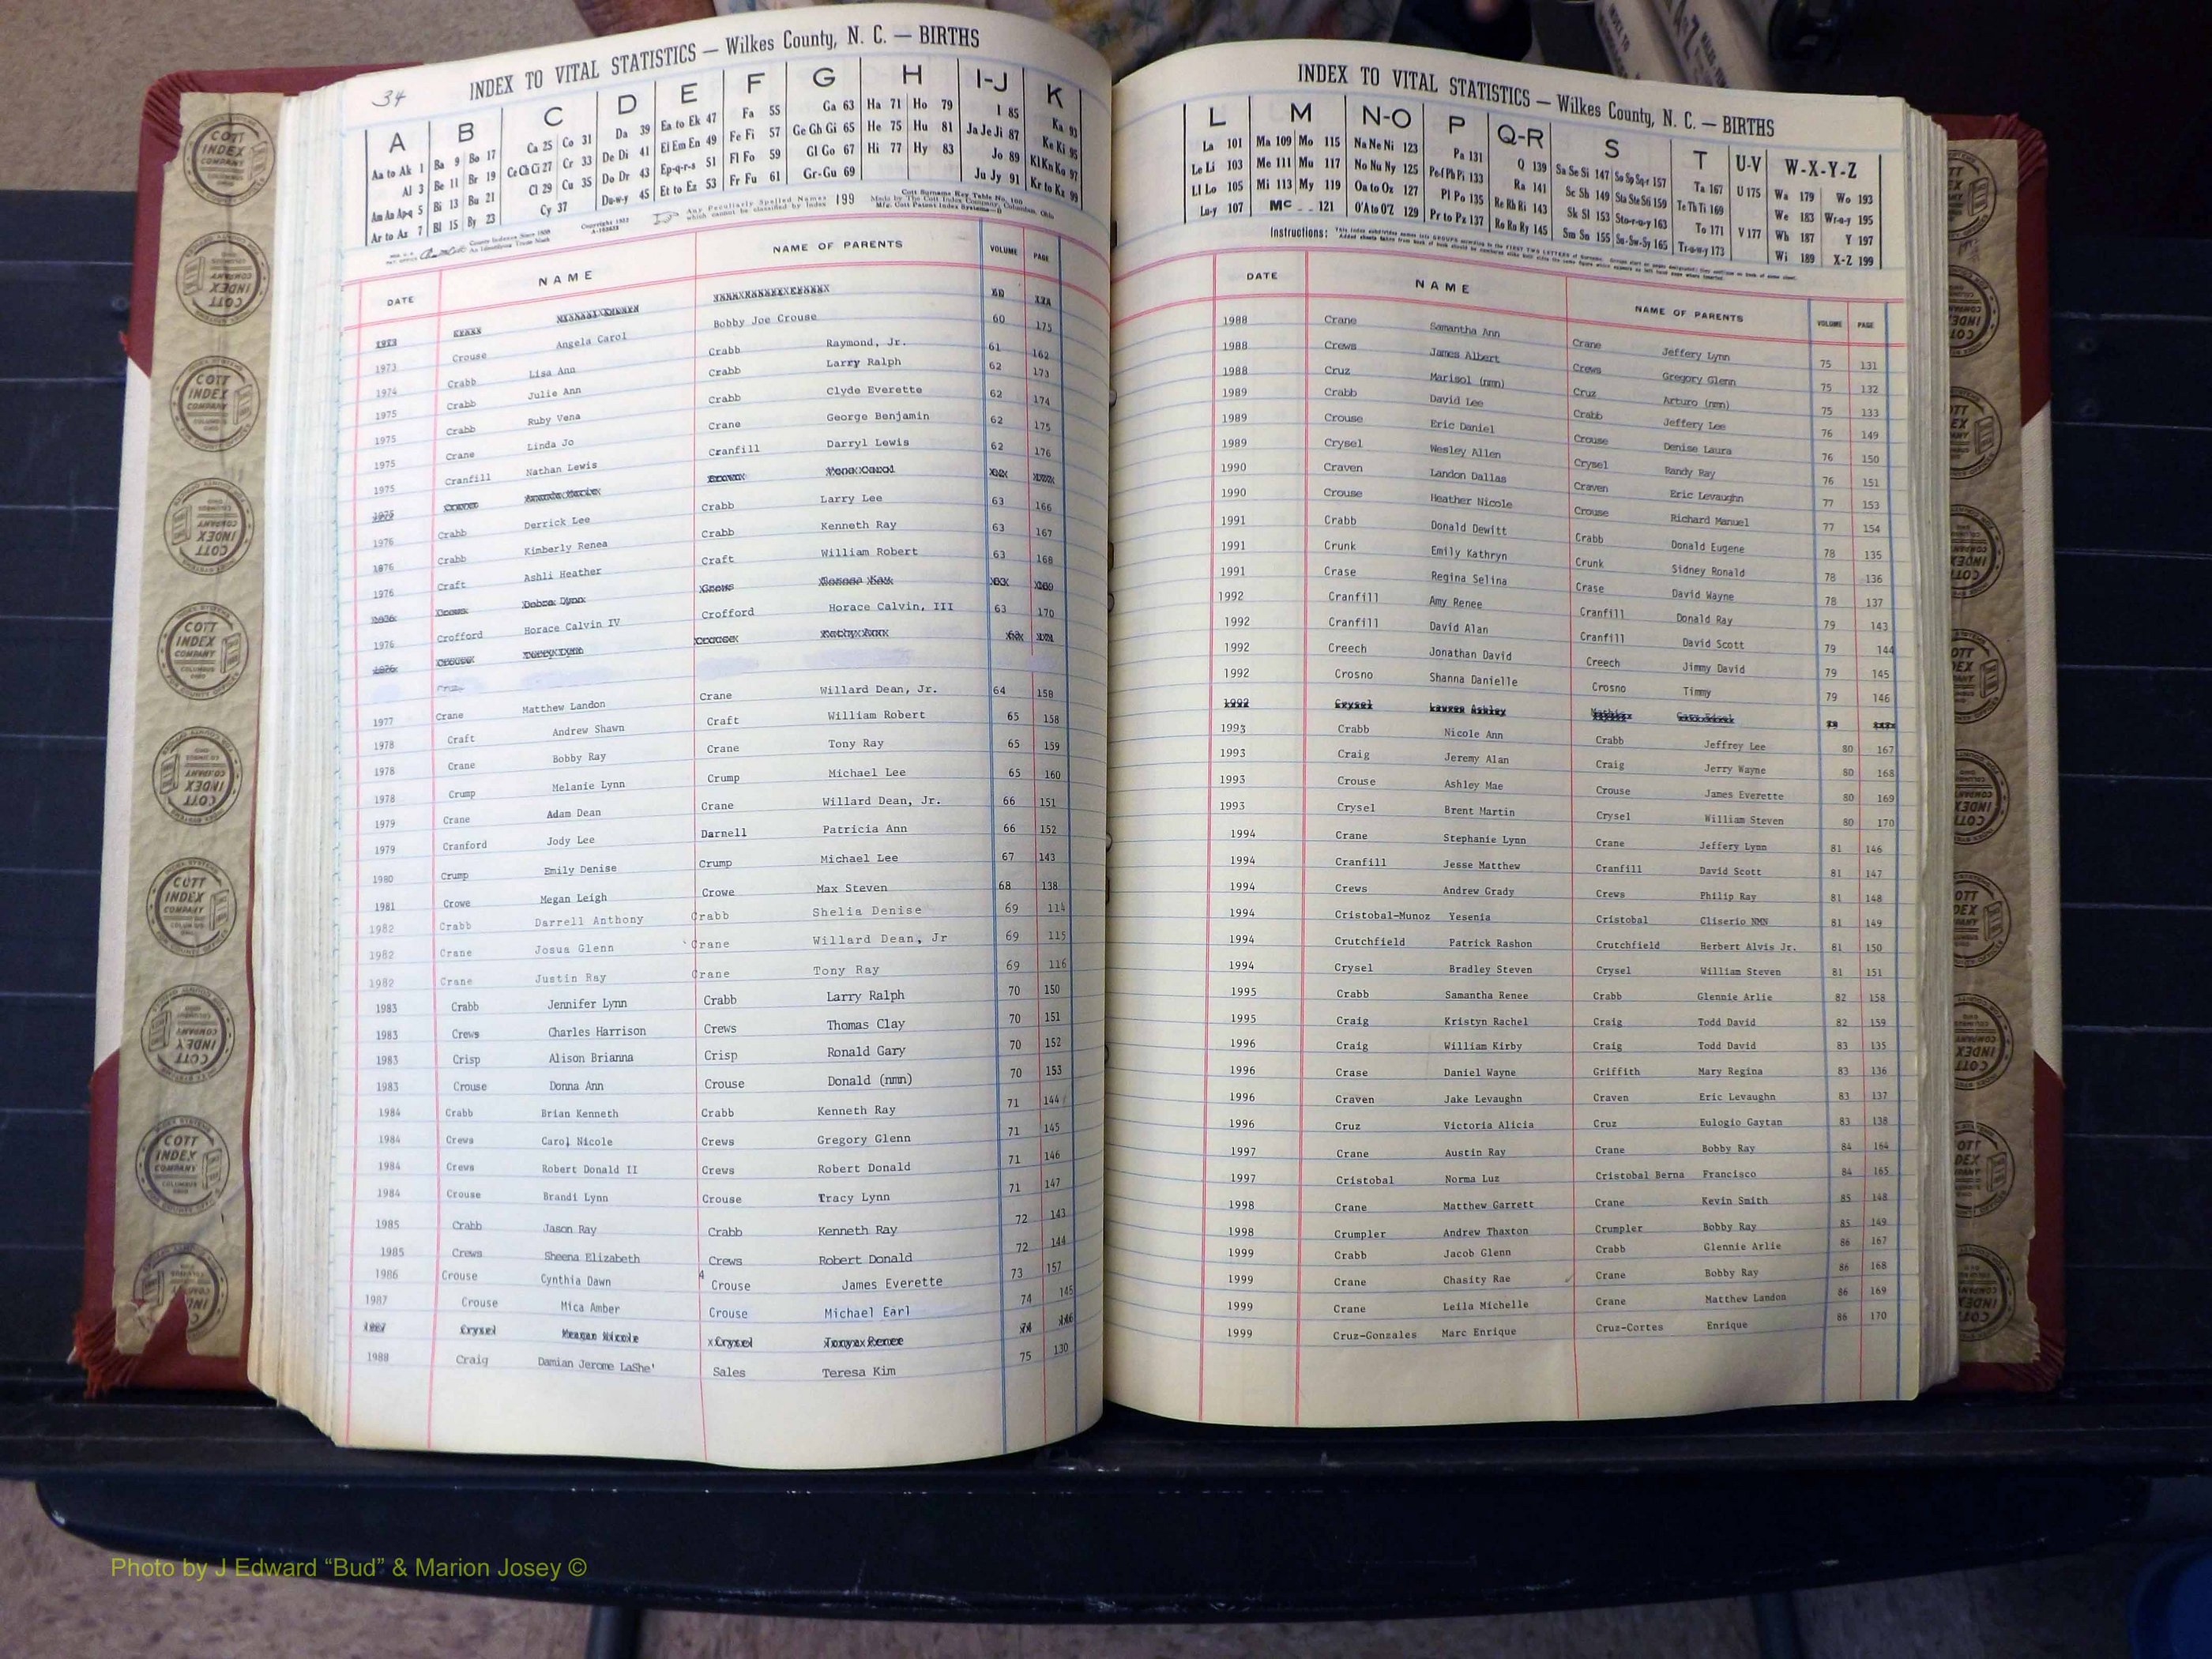 34
INDEX TO VITAL STATISTICS — Wilkes County, N. C. — BIRTHS
A B C D E F G H I-J K
Aa to Ak 1 Ba 9 Bo 17 Ca 25 Co 31 Da 39 Ea to Ek 47 Fa 55 Ga 63 Ha 71 Ho 79 I 85 Ka 93
Al 3 Be 11 Br 19 Ce Ch Ci 27 Cr 33 De Di 41 El Em En 49 Fe Fi 57 Ge Gh Gi 65 He 75 Hu 81 Ja Je Ji 87 Ke Ki 95
Am An Ap-q 5 Bi 13 Bu 21 Cl 29 Cu 35 Do Dr 43 Ep-q-r-s 51 Fl Fo 59 Gl Go 67 Hi 77 Hy 83 Jo 89 Kl Kn Ko 97
Ar to Az 7 Bl 15 By 23 Cy 37 Du-w-y 45 Et to Ez 53 Fr Fu 61 Gr-Gu 69 Ju Jy 91 Kr to Kz 99
Any Peculiarly Spelled Names which cannot be classified by Index 199
DATE NAME NAME OF PARENTS VOLUME PAGE
1973
1973 Crouse Angela Carol Bobby Joe Crouse 60 175
1974 Crabb Lisa Ann Crabb Raymond, Jr. 61 162
1975 Crabb Julie Ann Crabb Larry Ralph 62 173
1975 Crabb Ruby Vena Crabb Clyde Everette 62 174
1975 Crane Linda Jo Crane George Benjamin 62 175
1975 Cranfill Nathan Lewis Cranfill Darryl Lewis 62 176
1976 Crabb Derrick Lee Crabb Larry Lee 63 166
1976 Crabb Kimberly Renea Crabb Kenneth Ray 63 167
1976 Craft Ashli Heather Craft William Robert 63 168
1976 Crofford Horace Calvin IV Crofford Horace Calvin, III 63 170
1977 Crane Matthew Landon Crane Willard Dean, Jr. 64 158
1978 Craft Andrew Shawn Craft William Robert 65 158
1978 Crane Bobby Ray Crane Tony Ray 65 159
1978 Crump Melanie Lynn Crump Michael Lee 65 160
1979 Crane Adam Dean Crane Willard Dean, Jr. 66 151
1979 Cranford Jody Lee Darnell Patricia Ann 66 152
1980 Crump Emily Denise Crump Michael Lee 67 143
1981 Crowe Megan Leigh Crowe Max Steven 68 138
1982 Crabb Darrell Anthony Crabb Shelia Denise 69 114
1982 Crane Josua Glenn Crane Willard Dean, Jr 69 115
1982 Crane Justin Ray Crane Tony Ray 69 116
1983 Crabb Jennifer Lynn Crabb Larry Ralph 70 150
1983 Crews Charles Harrison Crews Thomas Clay 70 151
1983 Crisp Alison Brianna Crisp Ronald Gary 70 152
1983 Crouse Donna Ann Crouse Donald (nmn) 70 153
1984 Crabb Brian Kenneth Crabb Kenneth Ray 71 144
1984 Crews Carol Nicole Crews Gregory Glenn 71 145
1984 Crews Robert Donald II Crews Robert Donald 71 146
1984 Crouse Brandi Lynn Crouse Tracy Lynn 71 147
1985 Crabb Jason Ray Crabb Kenneth Ray 72 143
1985 Crews Sheena Elizabeth Crews Robert Donald 72 144
1986 Crouse Cynthia Dawn Crouse James Everette 73 157
1987 Crouse Mica Amber Crouse Michael Earl 74 145
1987 Crysel Meagan Nicole Crysel Tonya Renee 74 146
1988 Craig Damian Jerome LaShe' Sales Teresa Kim 75 130
INDEX TO VITAL STATISTICS — Wilkes County, N. C. — BIRTHS
L M N-O P Q-R S T U-V W-X-Y-Z
La 101 Ma 109 Mo 115 Na Ne Ni 123 Pa 131 Q 139 Sa Se Si 147 So Sp Sq-r 157 Ta 167 U 175 Wa 179 Wo 193
Le Li 103 Me 111 Mu 117 No Nu Ny 125 Pe-f Ph Pi 133 Ra 141 Sc Sh 149 Sta Ste Sti 159 Te Th Ti 169 We 183 Wr-u-y 195
Ll Lo 105 Mi 113 My 119 Oa to Ox 127 Pl Po 135 Re Rh Ri 143 Sk Sl 153 Sto-r-u-y 163 To 171 V 177 Wh 187 Y 197
Lu-y 107 Mc 121 O'A to O'Z 129 Pr to Pz 137 Ro Ru Ry 145 Sm Sn 155 Su-Sw-Sy 165 Tr-u-w-y 173 Wi 189 X-Z 199
Instructions:
DATE NAME NAME OF PARENTS VOLUME PAGE
1988 Crane Samantha Ann Crane Jeffery Lynn 75 131
1988 Crews James Albert Crews Gregory Glenn 75 132
1988 Cruz Marisol (nmn) Cruz Arturo (nmn) 75 133
1989 Crabb David Lee Crabb Jeffery Lee 76 149
1989 Crouse Eric Daniel Crouse Denise Laura 76 150
1989 Crysel Wesley Allen Crysel Randy Ray 76 151
1990 Craven Landon Dallas Craven Eric Levaughn 77 153
1990 Crouse Heather Nicole Crouse Richard Manuel 77 154
1991 Crabb Donald Dewitt Crabb Donald Eugene 78 135
1991 Crunk Emily Kathryn Crunk Sidney Ronald 78 136
1991 Crase Regina Selina Crase David Wayne 78 137
1992 Cranfill Amy Renee Cranfill Donald Ray 79 143
1992 Cranfill David Alan Cranfill David Scott 79 144
1992 Creech Jonathan David Creech Jimmy David 79 145
1992 Crosno Shanna Danielle Crosno Timmy 79 146
1992 Crysel Lauren Ashley
1993 Crabb Nicole Ann Crabb Jeffrey Lee 80 167
1993 Craig Jeremy Alan Craig Jerry Wayne 80 168
1993 Crouse Ashley Mae Crouse James Everette 80 169
1993 Crysel Brent Martin Crysel William Steven 80 170
1994 Crane Stephanie Lynn Crane Jeffery Lynn 81 146
1994 Cranfill Jesse Matthew Cranfill David Scott 81 147
1994 Crews Andrew Grady Crews Philip Ray 81 148
1994 Cristobal-Munoz Yesenia Cristobal Cliserio NMN 81 149
1994 Crutchfield Patrick Rashon Crutchfield Herbert Alvis Jr. 81 150
1994 Crysel Bradley Steven Crysel William Steven 81 151
1995 Crabb Samantha Renee Crabb Glennie Arlie 82 158
1995 Craig Kristyn Rachel Craig Todd David 82 159
1996 Craig William Kirby Craig Todd David 83 135
1996 Crase Daniel Wayne Griffith Mary Regina 83 136
1996 Craven Jake Levaughn Craven Eric Levaughn 83 137
1996 Cruz Victoria Alicia Cruz Eulogio Gaytan 83 138
1997 Crane Austin Ray Crane Bobby Ray 84 164
1997 Cristobal Norma Luz Cristobal Berna Francisco 84 165
1998 Crane Matthew Garrett Crane Kevin Smith 85 148
1998 Crumpler Andrew Thaxton Crumpler Bobby Ray 85 149
1999 Crabb Jacob Glenn Crabb Glennie Arlie 86 167
1999 Crane Chasity Rae Crane Bobby Ray 86 168
1999 Crane Leila Michelle Crane Matthew Landon 86 169
1999 Cruz-Gonzales Marc Enrique Cruz-Cortes Enrique 86 170
COTT INDEX COMPANY
Photo by J Edward “Bud” & Marion Josey ©